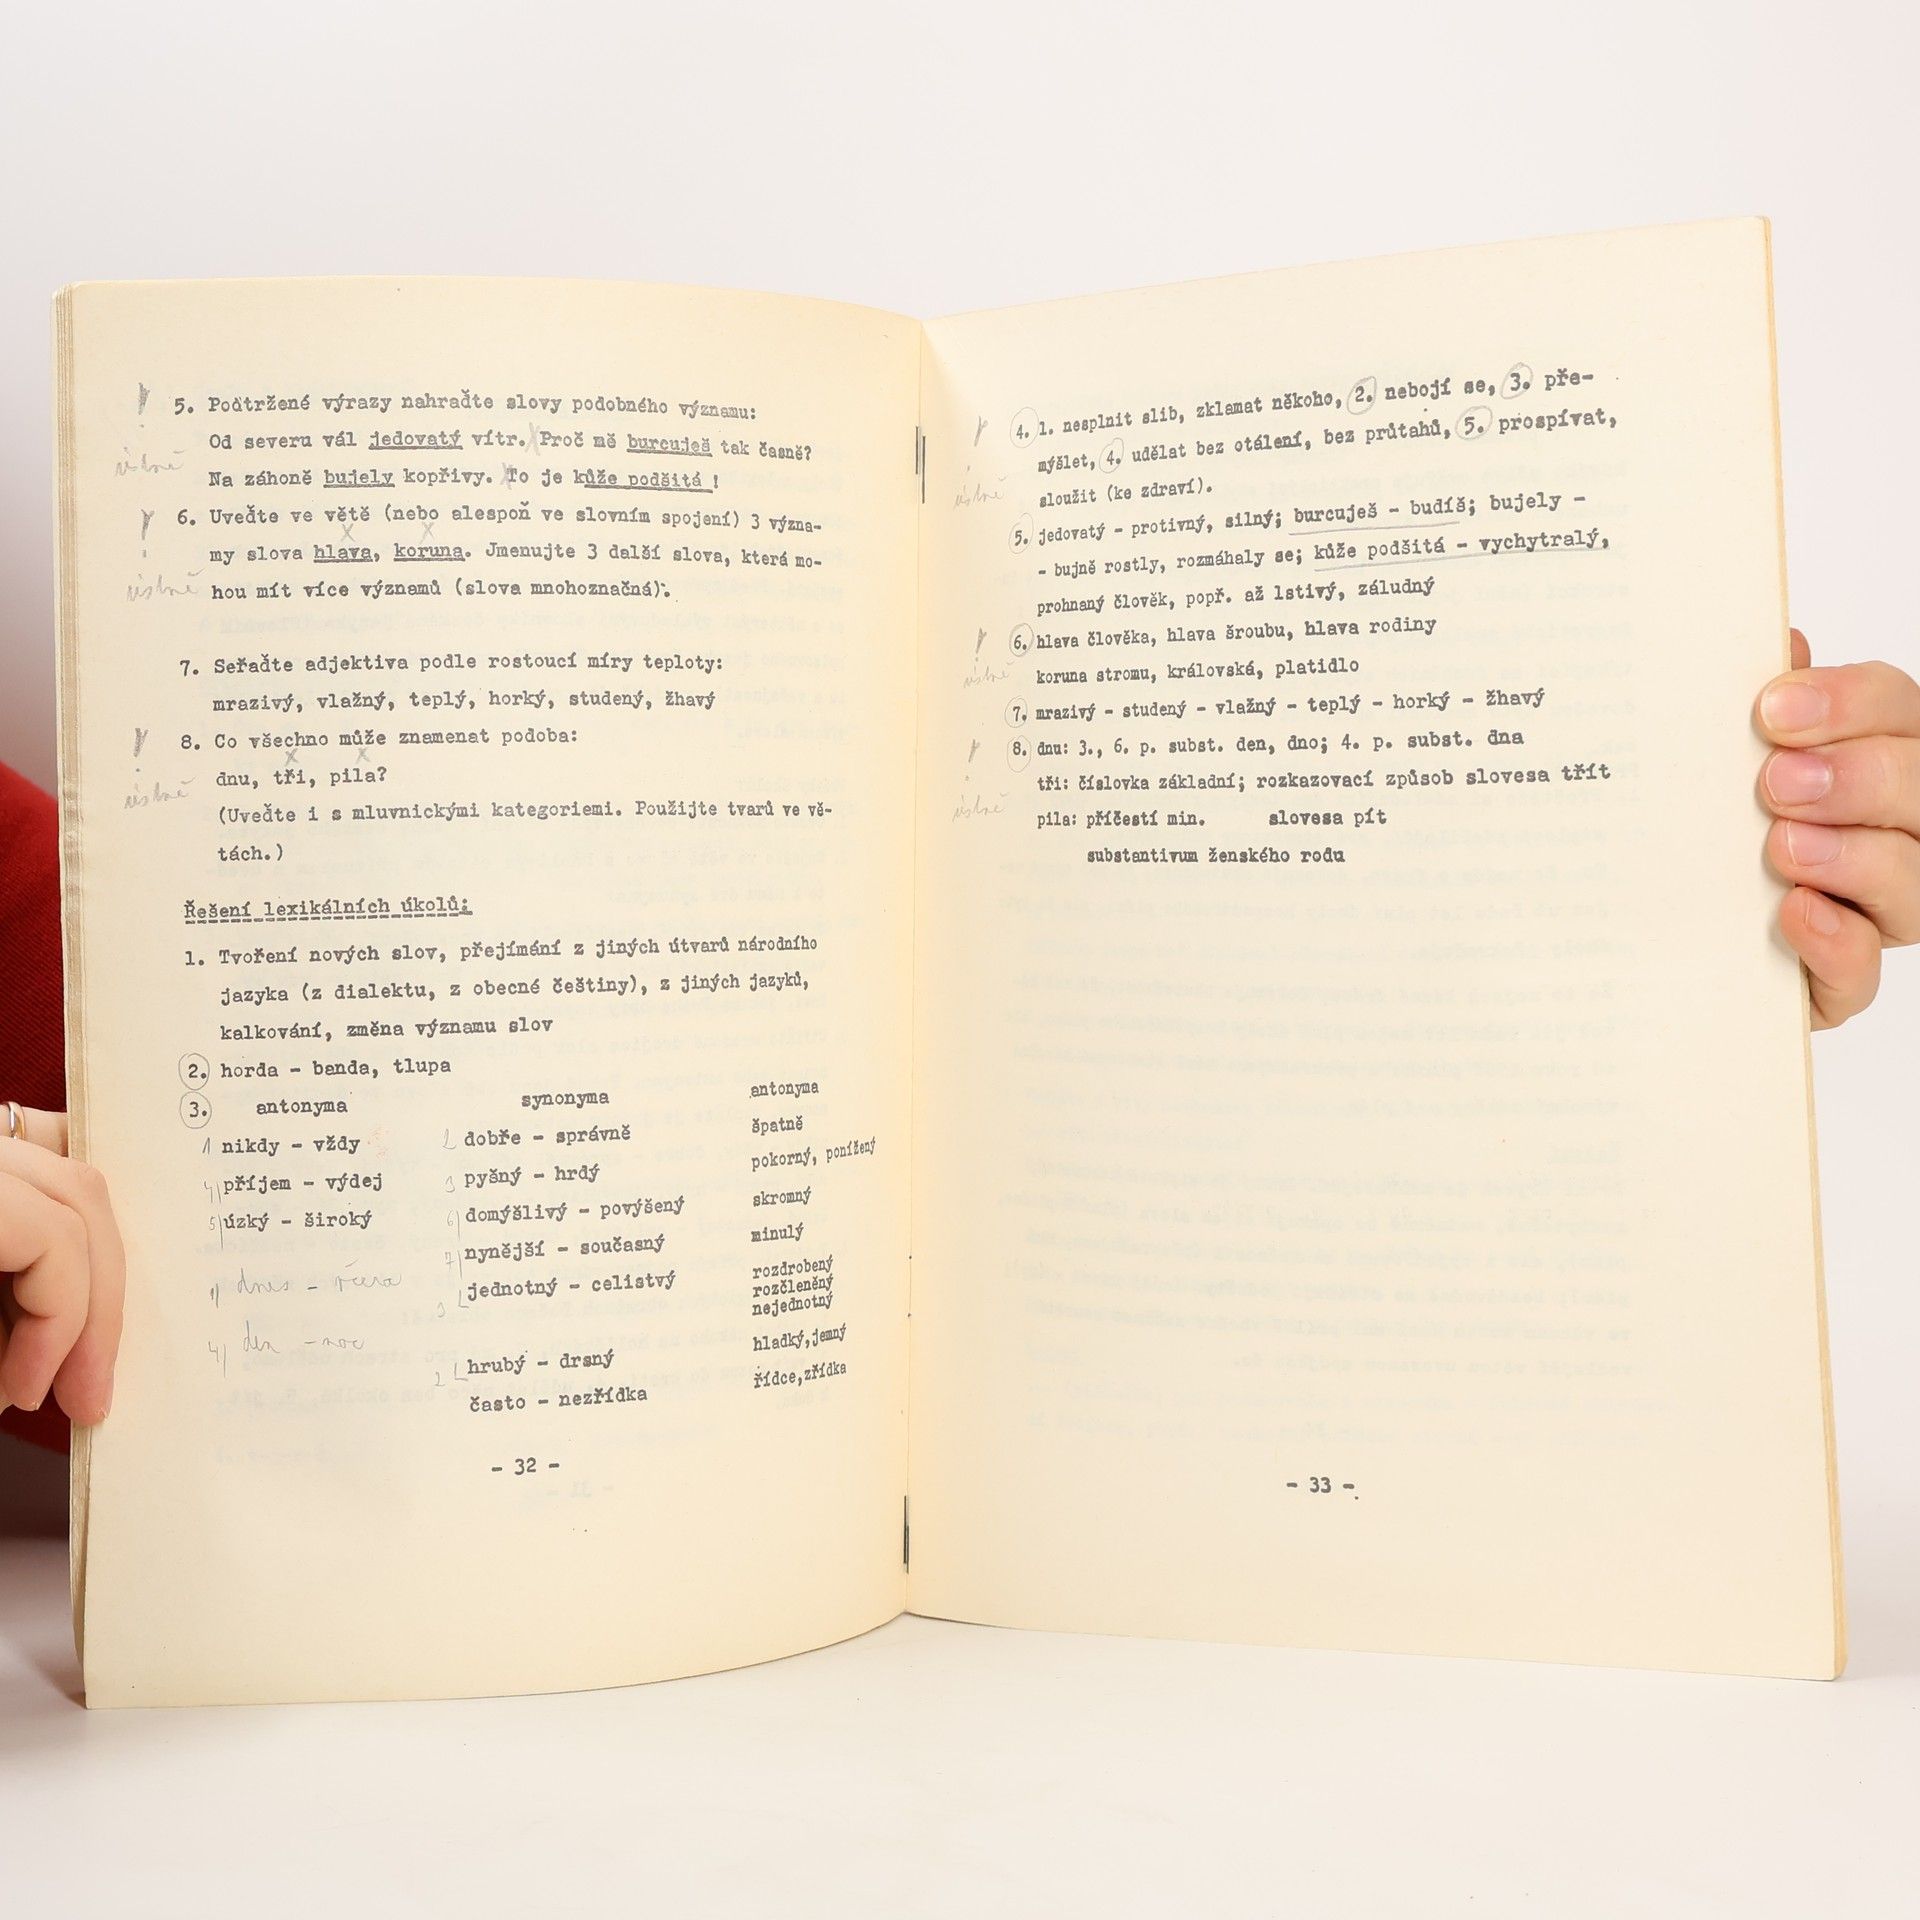 5. Podtržené výrazy nahraďte slovy podobného významu:
Od severu vál jedovatý vítr. Proč mě burcuješ tak časně?
ústně
Na záhoně bujely kopřivy. To je kůže podšitá!
6. Uveďte ve větě (nebo alespoň ve slovním spojení) 3 význa-
my slova hlava, koruna. Jmenujte 3 další slova, která mo-
ústně
hou mít více významů (slova mnohoznačná).
7. Seřaďte adjektiva podle rostoucí míry teploty:
mrazivý, vlažný, teplý, horký, studený, žhavý
8. Co všechno může znamenat podoba:
dnu, tři, pila?
ústně
(Uveďte i s mluvnickými kategoriemi. Použijte tvarů ve vě-
tách.)
Řešení lexikálních úkolů:
1. Tvoření nových slov, přejímání z jiných útvarů národního
jazyka (z dialektu, z obecné češtiny), z jiných jazyků,
kalkování, změna významu slov
2. horda - banda, tlupa
3. antonyma synonyma antonyma
1 nikdy - vždy 2 dobře - správně špatně
4) příjem - výdej 3 pyšný - hrdý pokorný, ponížený
5) úzký - široký 6) domýšlivý - povýšený skromný
7) nynější - současný minulý
1) dnes - včera 3 jednotný - celistvý rozdrobený
rozčleněný
nejednotný
4) den - noc 2 hrubý - drsný hladký,jemný
často - nezřídka řídce,zřídka
- 32 -
4. 1. nesplnit slib, zklamat někoho, 2. nebojí se, 3. pře-
mýšlet, 4. udělat bez otálení, bez průtahů, 5. prospívat,
ústně
sloužit (ke zdraví).
5. jedovatý - protivný, silný; burcuješ - budíš; bujely -
- bujně rostly, rozmáhaly se; kůže podšitá - vychytralý,
prohnaný člověk, popř. až lstivý, záludný
6. hlava člověka, hlava šroubu, hlava rodiny
ústně
koruna stromu, královská, platidlo
7. mrazivý - studený - vlažný - teplý - horký - žhavý
8. dnu: 3., 6. p. subst. den, dno; 4. p. subst. dna
tři: číslovka základní; rozkazovací způsob slovesa třít
ústně
pila: příčestí min. slovesa pít
substantivum ženského rodu
- 33 -